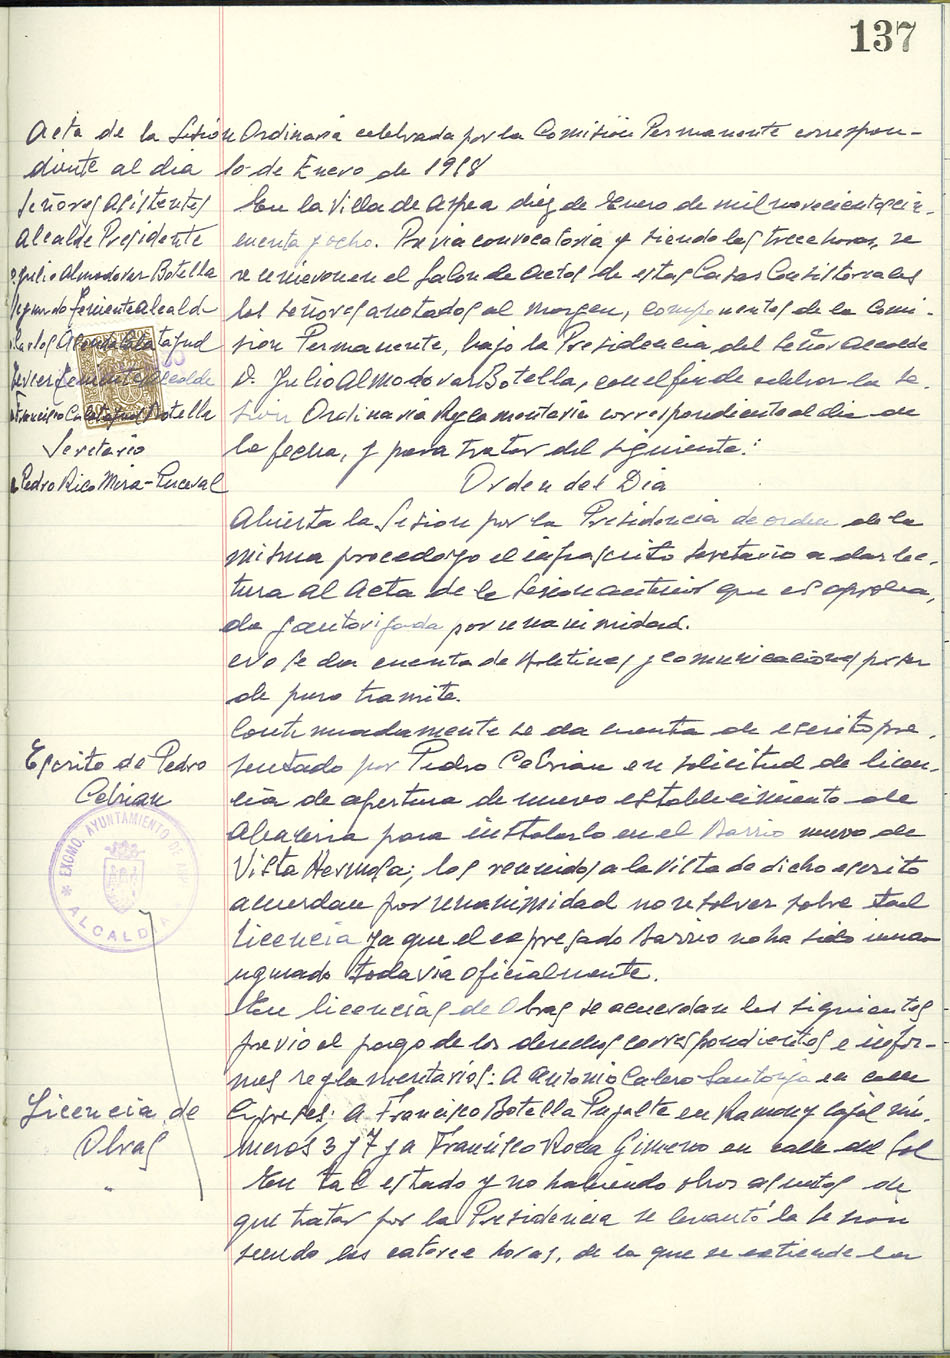 137
Acta de la Sesión Ordinaria celebrada por la Comisión Permanente correspon-
diente al dia 10 de Enero de 1958
Señores Asistentes
Alcalde Presidente
D. Julio Almodovar Botella
Segundo Teniente Alcalde
Carlos Calatayud
Tercer Teniente Alcalde
Francisco Calatayud Botella
Secretario
Pedro Rico Mira-Perceval
En la Villa de Aspe a diez de Enero de mil novecientos cin-
cuenta y ocho. Previa convocatoria y siendo las trece horas, se
reunieron en el Salon de Actos de estas Casas Consistoriales
los señores anotados al margen, componentes de la Comi-
sion Permanente, bajo la Presidencia del Señor Alcalde
D. Julio Almodovar Botella, con el fin de celebrar la Se-
sion Ordinaria Reglamentaria correspondiente al dia de
la fecha, y para tratar del siguiente:
Orden del Dia
Abierta la Sesion por la Presidencia de orden de la
misma procedo yo el infrascrito Secretario a dar lec-
tura al Acta de la Sesion anterior que es aproba-
da y autorizada por unanimidad.
No se da cuenta de Boletines y comunicaciones por ser
de puro tramite.
Escrito de Pedro
Cebrian
Continuadamente se da cuenta de escrito pre-
sentado por Pedro Cebrian en solicitud de licen-
cia de apertura de nuevo establecimiento de
Abaceria para instalarlo en el Barrio nuevo de
Vista Hermosa; los reunidos a la vista de dicho escrito
acuerdan por unanimidad no resolver sobre tal
licencia ya que el expresado Barrio no ha sido inau-
gurado todavia oficialmente.
EXCMO. AYUNTAMIENTO DE
ALCALDIA
Licencia de
Obras
En licencias de Obras se acuerdan las siguientes
previo el pago de los derechos correspondientes e infor-
mes reglamentarios: A Antonio Calero Santonja en calle
Cipreses: a Francisco Botella Pujalte en Ramon y Cajal nú-
meros 3 y 7 y a Francisco Roca Gimeno en calle del Sol
En tal estado y no habiendo otros asuntos de
que tratar por la Presidencia se levantó la Sesion
siendo las catorce horas, de la que se extiende la